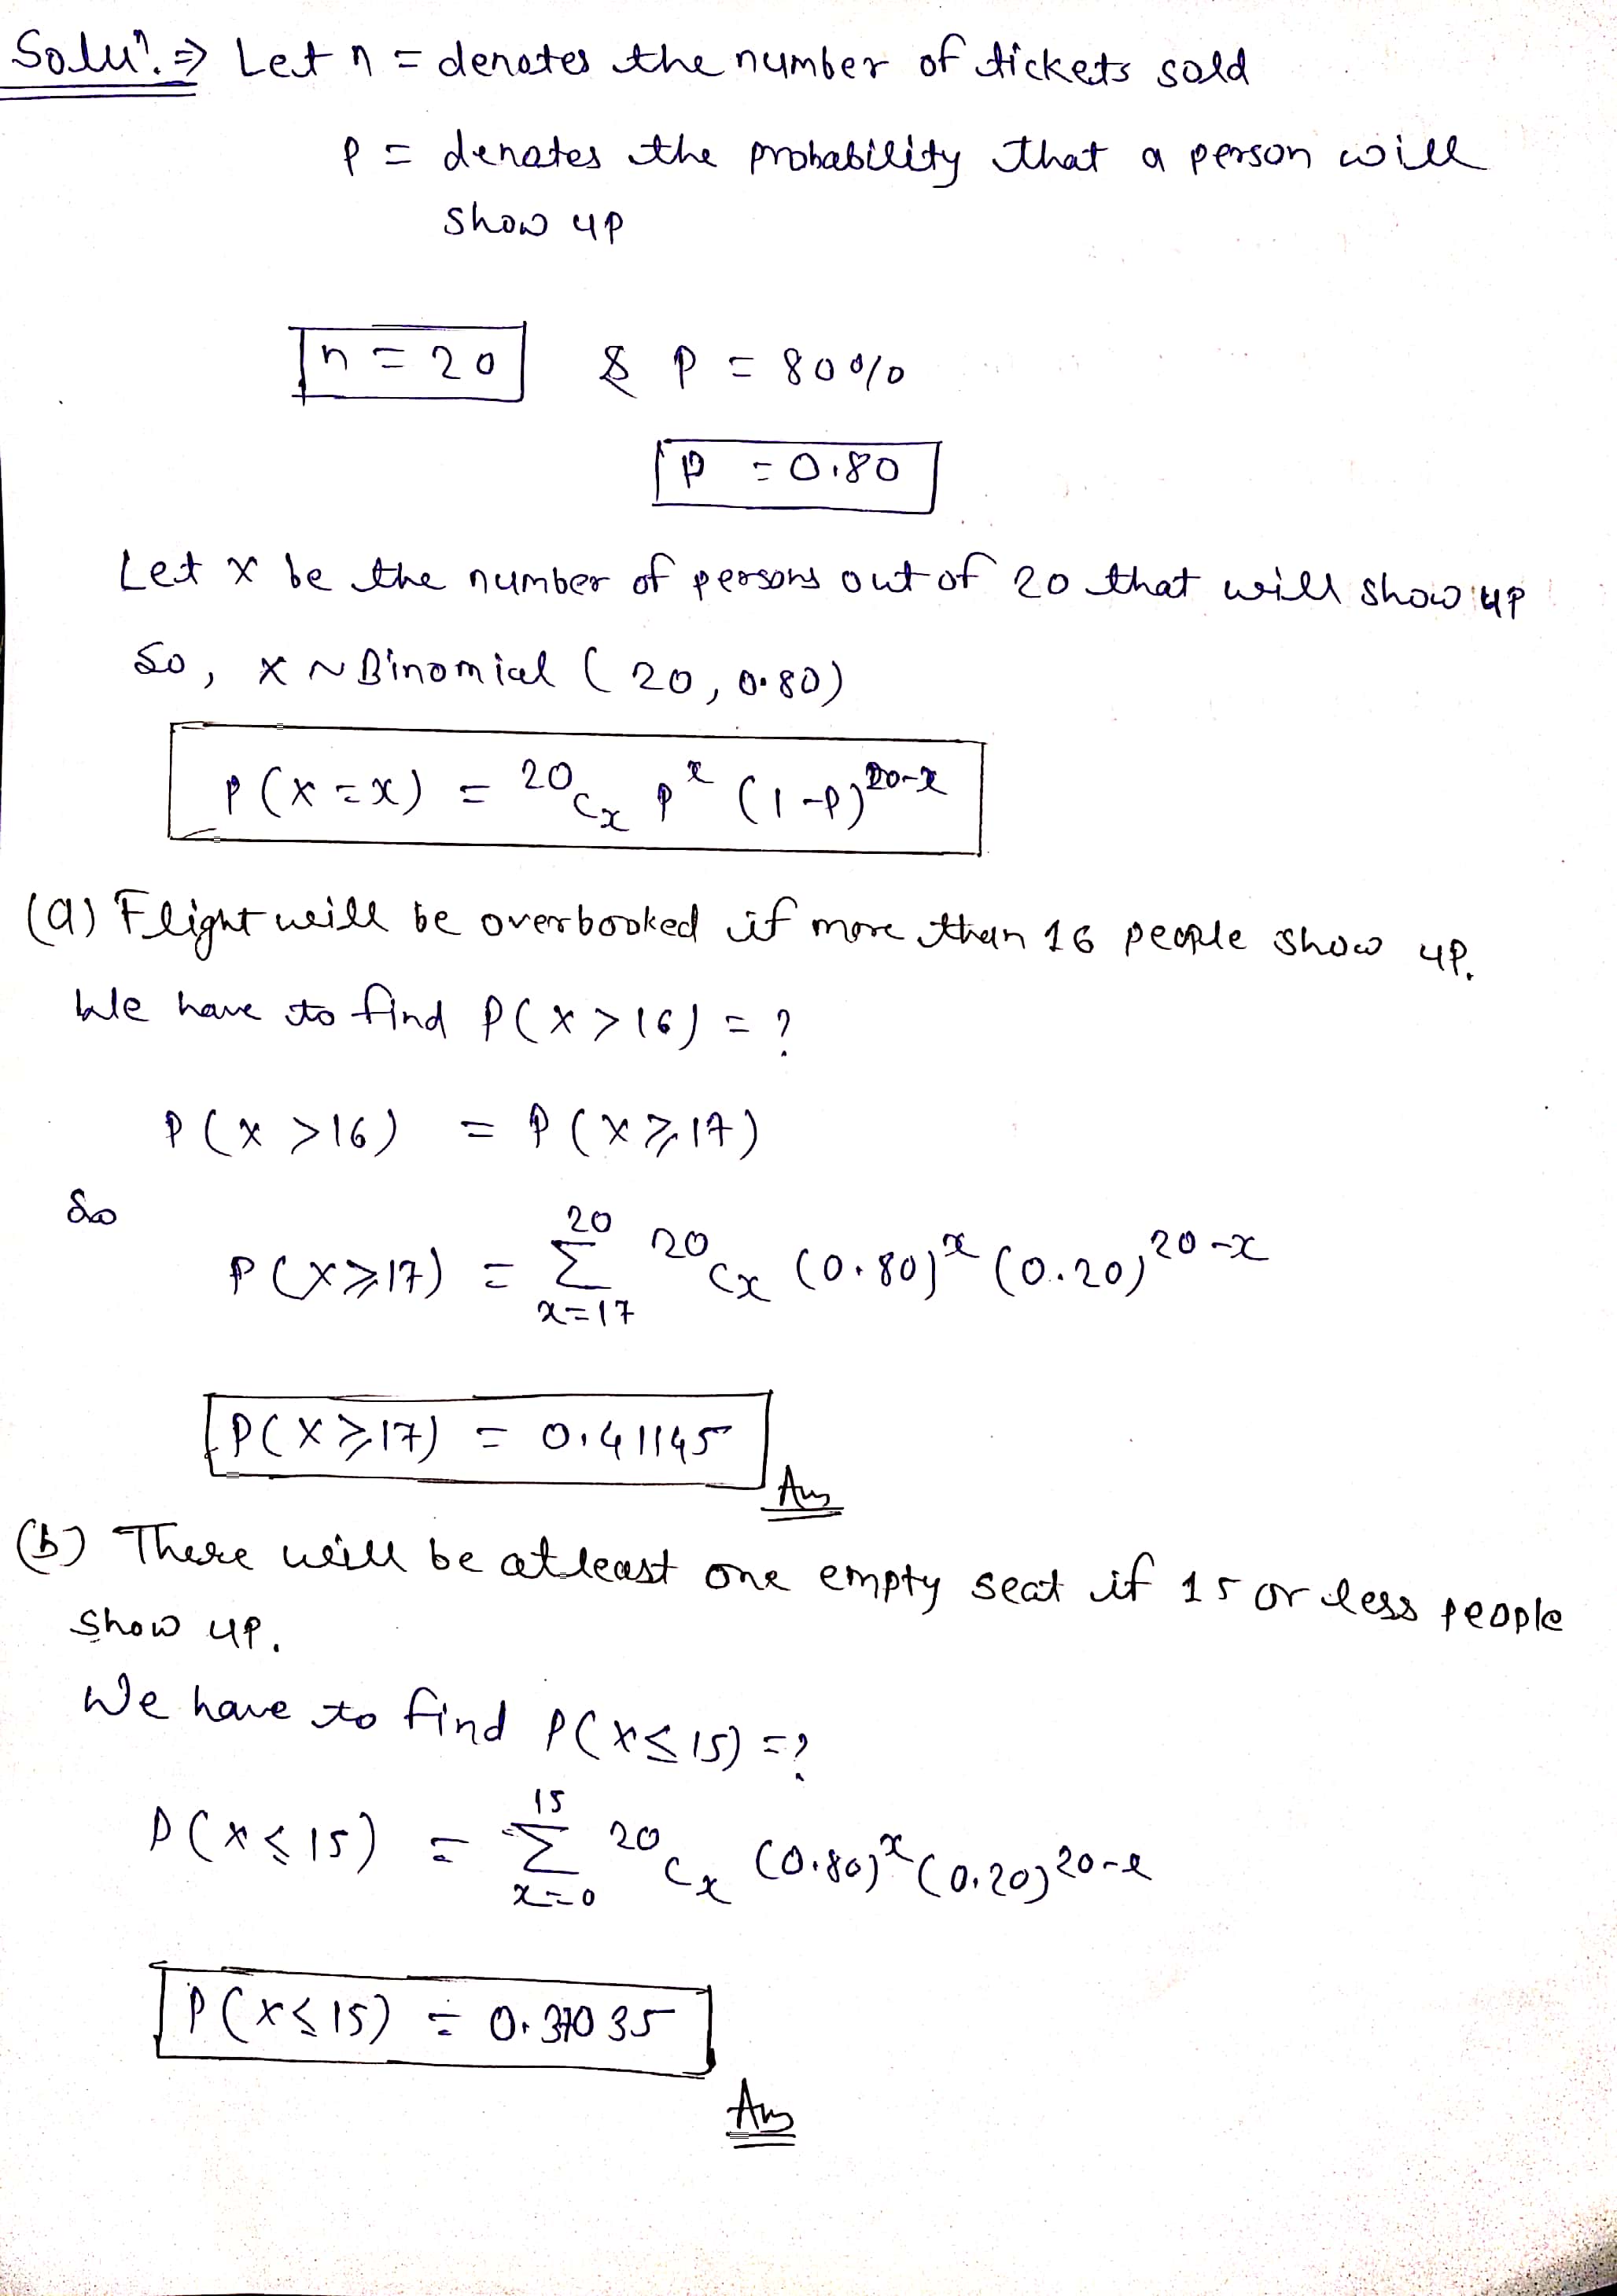 Soluⁿ. ⇒ Let n = denotes the number of tickets sold
P = denotes the probability that a person will
show up
n = 20 & P = 80%
P = 0.80
Let X be the number of persons out of 20 that will show up
So, X ~ Binomial (20, 0.80)
P(X = x) = ²⁰Cₓ pˣ (1-p)²⁰⁻ˣ
(a) Flight will be overbooked if more than 16 people show up.
We have to find P(X > 16) = ?
P(X > 16) = P(X ≥ 17)
So
P(X ≥ 17) = 20 Σ x=17 ²⁰Cₓ (0.80)ˣ (0.20)²⁰⁻ˣ
P(X ≥ 17) = 0.41145
Ans
(b) There will be atleast one empty seat if 15 or less people
show up.
We have to find P(X ≤ 15) = ?
P(X ≤ 15) = 15 Σ x=0 ²⁰Cₓ (0.80)ˣ (0.20)²⁰⁻ˣ
P(X ≤ 15) = 0.37035
Ans